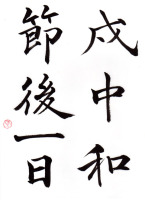 戌中和
節後一日